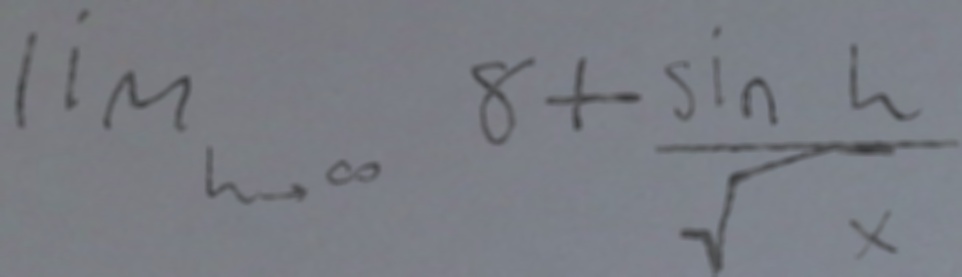 lim h→∞ 8 + sin h / √x